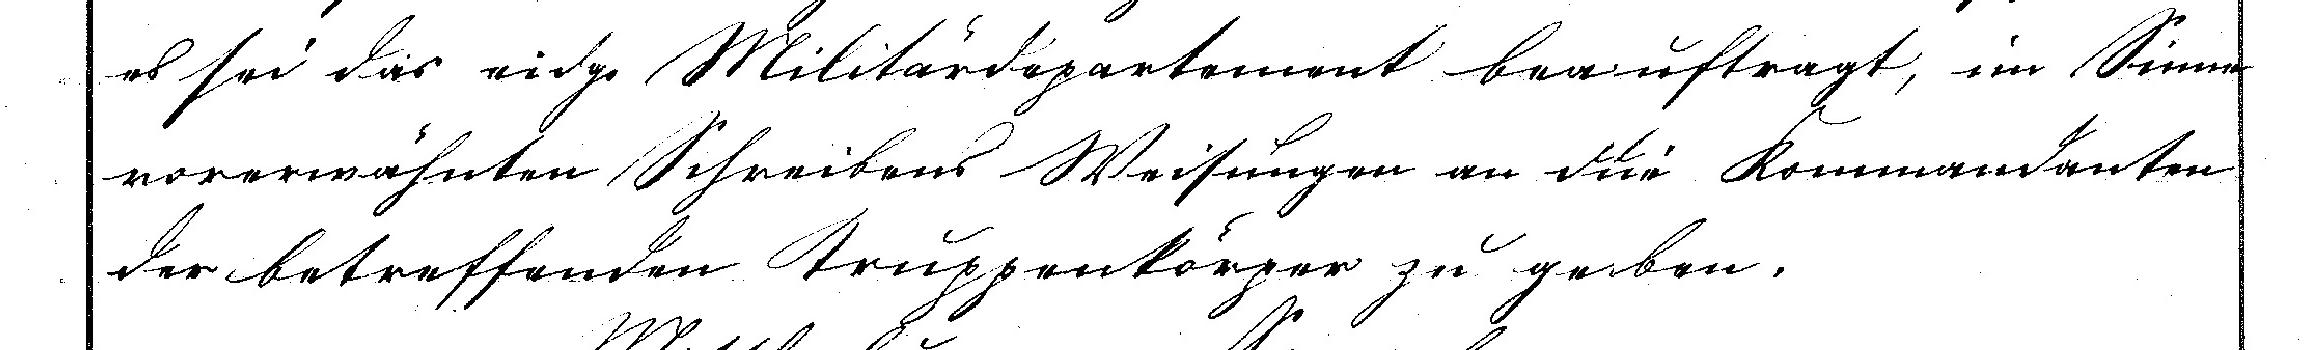 es sei das eidg. Militärdepartement beauftragt, im Sinne
vorerwähnten Schreibens Weisungen an die Kommandanten
der betreffenden Truppenkörper zu geben.